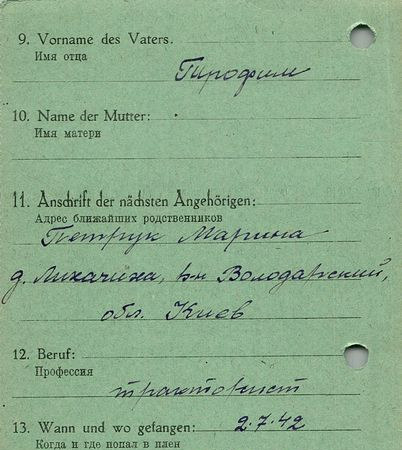 9. Vorname des Vaters.
Имя отца
Трофим
10. Name der Mutter:
Имя матери
11. Anschrift der nächsten Angehörigen:
Адрес ближайших родственников
Петрук Марина
д. Лихачиха, рн Володарский,
обл. Киев
12. Beruf:
Профессия
тракторист
13. Wann und wo gefangen: 2.7.42
Когда и где попал в плен